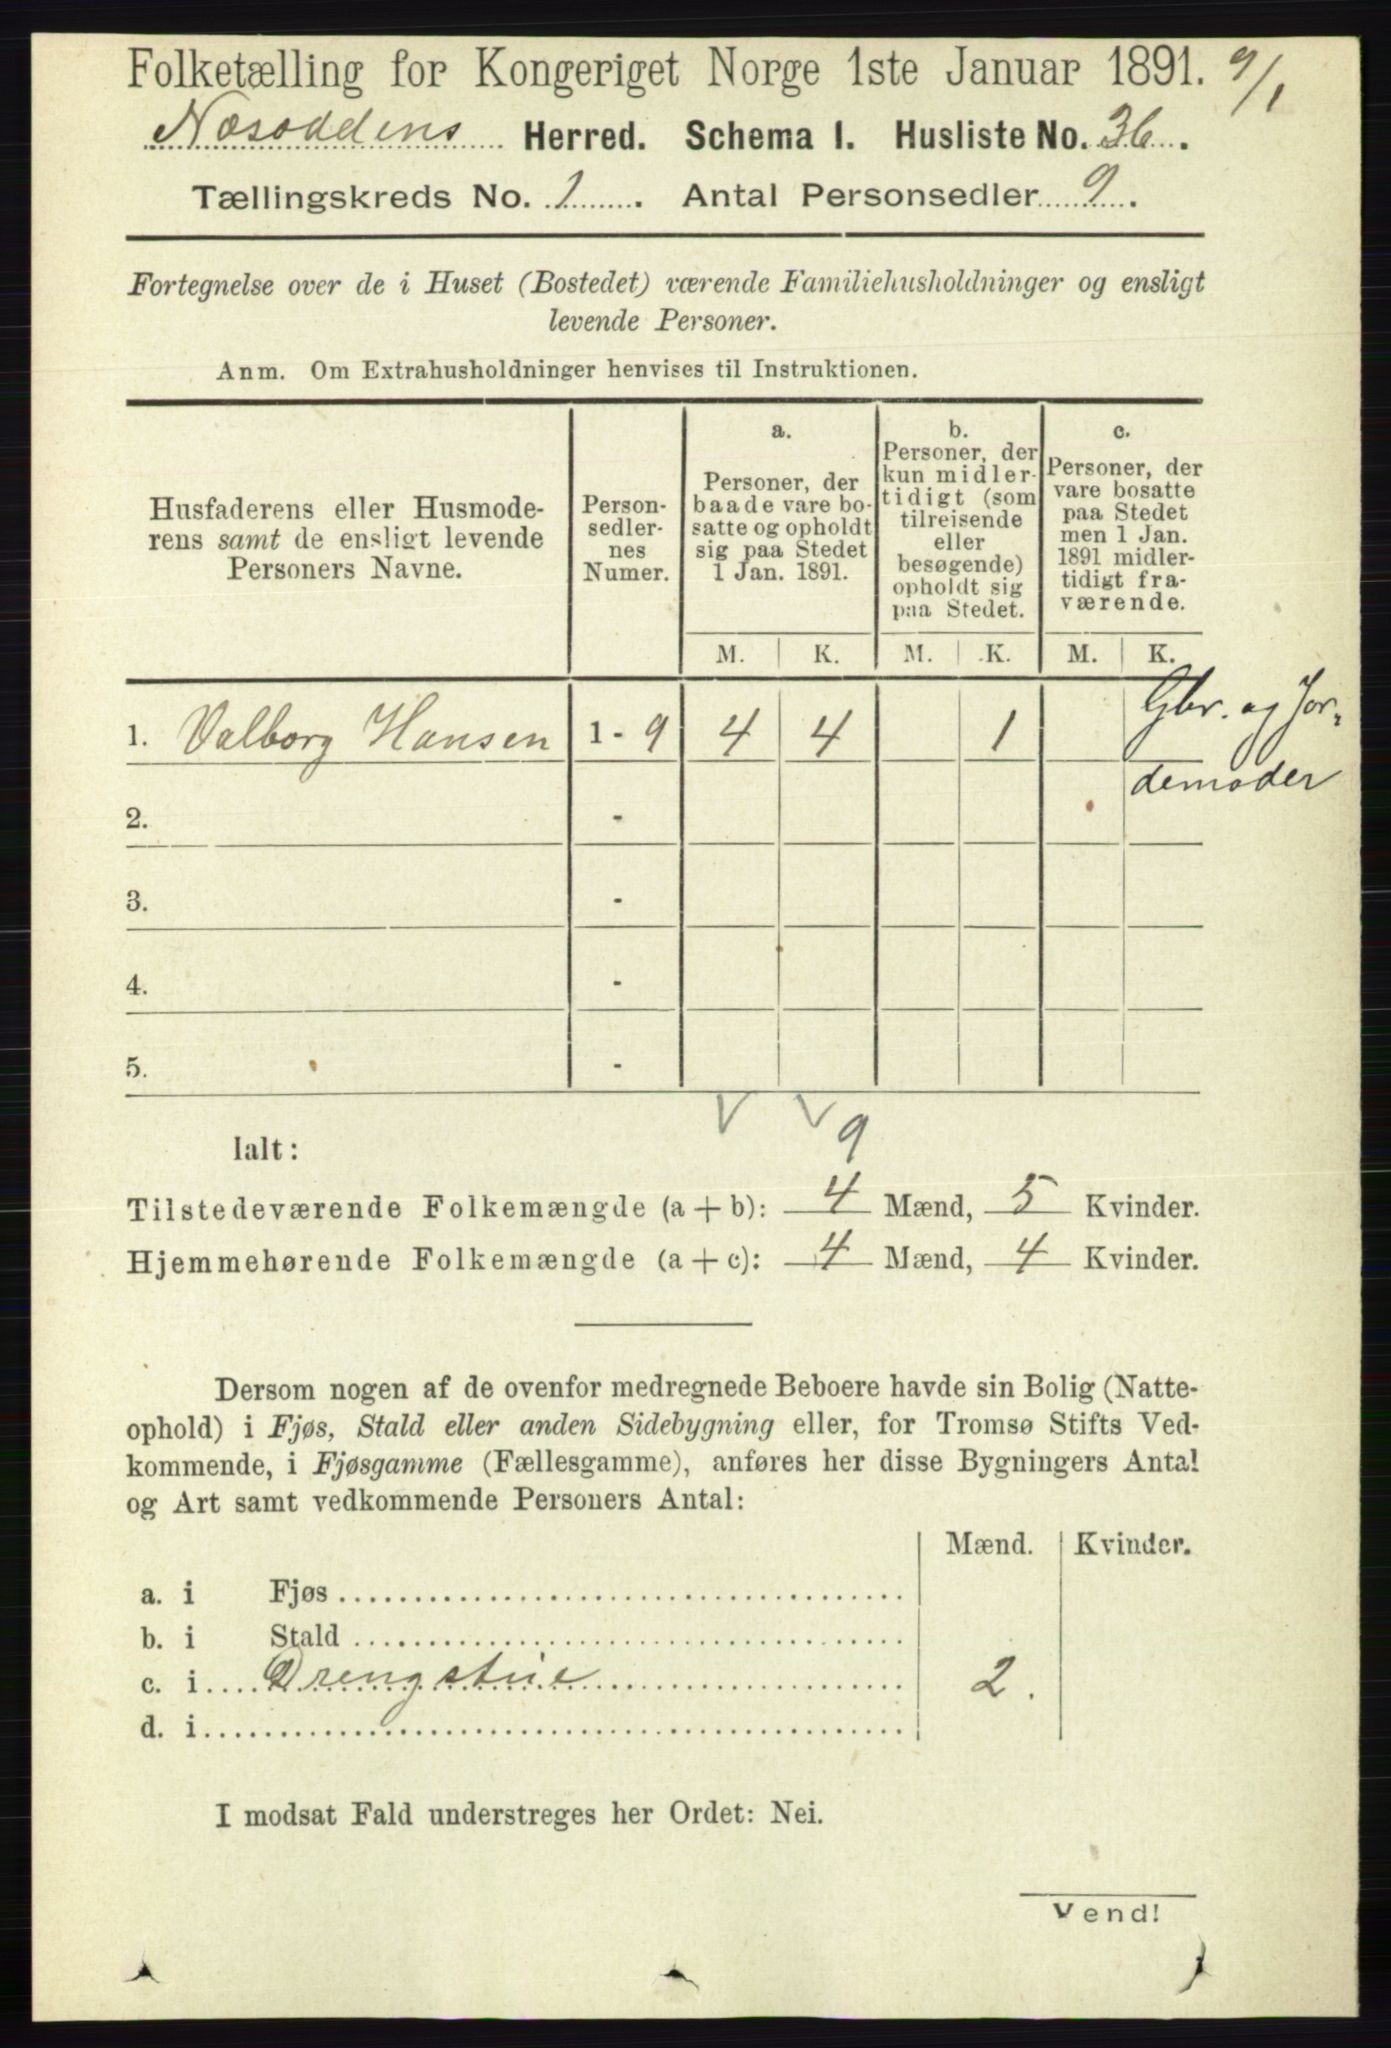 Folketælling for Kongeriget Norge 1ste Januar 1891. 9/1
Næsoddens Herred. Schema I. Husliste No. 36.
Tællingskreds No. 1. Antal Personsedler 9.
Fortegnelse over de i Huset (Bostedet) værende Familiehusholdninger og ensligt
levende Personer.
Anm. Om Extrahusholdninger henvises til Instruktionen.
Husfaderens eller Husmode-
rens samt de ensligt levende
Personers Navne.
Person-
sedler-
nes
Numer.
a.
Personer, der
baade vare bo-
satte og opholdt
sig paa Stedet
1 Jan. 1891.
b.
Personer, der
kun midler-
tidigt (som
tilreisende
eller
besøgende)
opholdt sig
paa Stedet.
c.
Personer, der
vare bosatte
paa Stedet
men 1 Jan.
1891 midler-
tidigt fra-
værende.
M. K. M. K. M. K.
1. Valborg Hansen 1 - 9 4 4 1 Gbr. og Jor-
demoder
2. -
3. -
4. -
5. -
9
Ialt:
Tilstedeværende Folkemængde (a + b): 4 Mænd, 5 Kvinder.
Hjemmehørende Folkemængde (a + c): 4 Mænd, 4 Kvinder.
Dersom nogen af de ovenfor medregnede Beboere havde sin Bolig (Natte-
ophold) i Fjøs, Stald eller anden Sidebygning eller, for Tromsø Stifts Ved-
kommende, i Fjøsgamme (Fællesgamme), anføres her disse Bygningers Antal
og Art samt vedkommende Personers Antal:
Mænd. Kvinder.
a. i Fjøs
b. i Stald
c. i Drengstue 2.
d. i
I modsat Fald understreges her Ordet: Nei.
Vend!